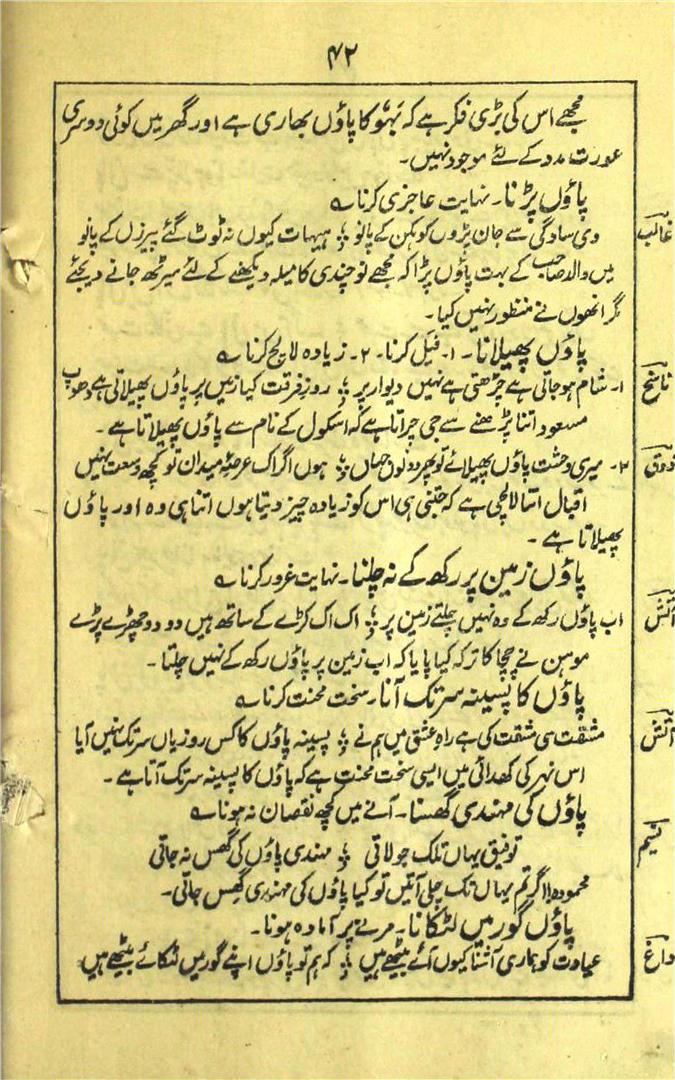 ۴۲
مجھے اس کی بڑی فکر ہے کہ بَہُو کا پاؤں بھاری ہے اور گھر میں کوئی دوسری
عورت مدد کے لئے موجود نہیں۔
پاؤں پڑنا۔ نہایت عاجزی کرنا ؎
غالب وی سادگی سے جان پڑوں کوہکن کے پانو ؛ ہیہات کیوں نہ ٹوٹ گئے پیرزن کے پانو
میں والد صاحب کے بہت پاؤں پڑا کہ مجھے نوچندی کا میلہ دیکھنے کے لئے میرٹھ جانے دیجئے
مگر انھوں نے منظور نہیں کیا۔
پاؤں پھیلانا۔ ۱۔ فیَل کرنا۔ ۲۔ زیادہ لالچ کرنا ؎
ناسخ ۱۔ شام ہو جاتی ہے چڑھتی ہے نہیں دیوار پر ؛ روزِ فرقت کیا زمیں پر پاؤں پھیلاتی ہے دھوپ
مسعود اتنا پڑھنے سے جی چراتا ہے کہ اسکول کے نام سے پاؤں پھیلاتا ہے۔
ذوق ۲۔ میری وحشت پاؤں پھیلائے تو پھر دونوں جہاں ؛ ہوں اگر اک عرصۂ میداں تو کچھ وسعت نہیں
اقبال اتنا لالچی ہے کہ جتنی ہی اس کو زیادہ چیز دیتا ہوں اتنا ہی وہ اور پاؤں
پھیلاتا ہے۔
پاؤں زمین پر رکھ کے نہ چلنا۔ نہایت غرور کرنا ؎
آتش اب پاؤں رکھ کے وہ نہیں چلتے زمین پر ؛ اک اک کڑے کے ساتھ ہیں دو دو چھڑے پڑے
موہن نے چچا کا ترکہ کیا پایا کہ اب زمین پر پاؤں رکھ کے نہیں چلتا۔
پاؤں کا پسینہ سر تک آنا۔ سخت محنت کرنا ؎
آتش مشقت سی مشقت کی ہے راہِ عشق میں ہم نے ؛ پسینہ پاؤں کا کس روز یاں سر تک نہیں آیا
اس نہر کی کھدائی میں ایسی سخت محنت ہے کہ پاؤں کا پسینہ سر تک آتا ہے۔
پاؤں کی مہندی گھسنا۔ آنے میں کچھ نقصان نہ ہونا ؎
نسیم توفیق یہاں تلک جو لاتی ؛ مہندی پاؤں کی گھس نہ جاتی
محمودہ! اگر تم یہاں تک چلی آتیں تو کیا پاؤں کی مہندی گھِس جاتی۔
پاؤں گور میں لٹکانا۔ مرنے پر آمادہ ہونا۔
داغ عیادت کو ہماری آشنا کیوں آئے بیٹھے ہیں ؛ کہ ہم تو پاؤں اپنے گور میں لٹکائے بیٹھے ہیں